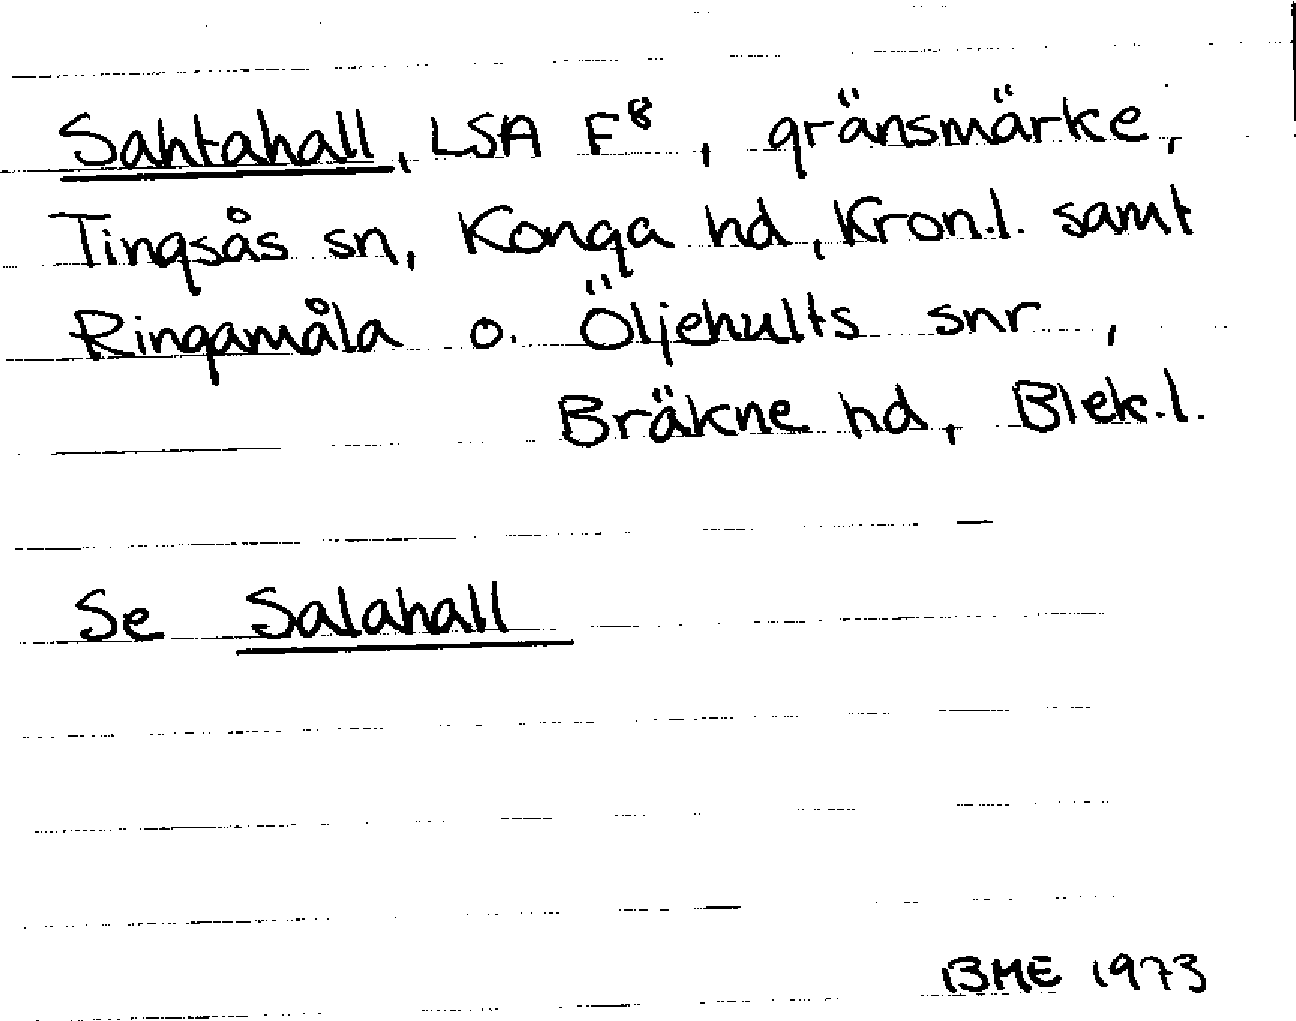 Sahtahall, LSA F⁸, gränsmärke,
Tingsås sn, Konga hd, Kron.l. samt
Ringamåla o. Öljehults snr,
Bräkne hd, Blek.l.
Se Salahall
BME 1973